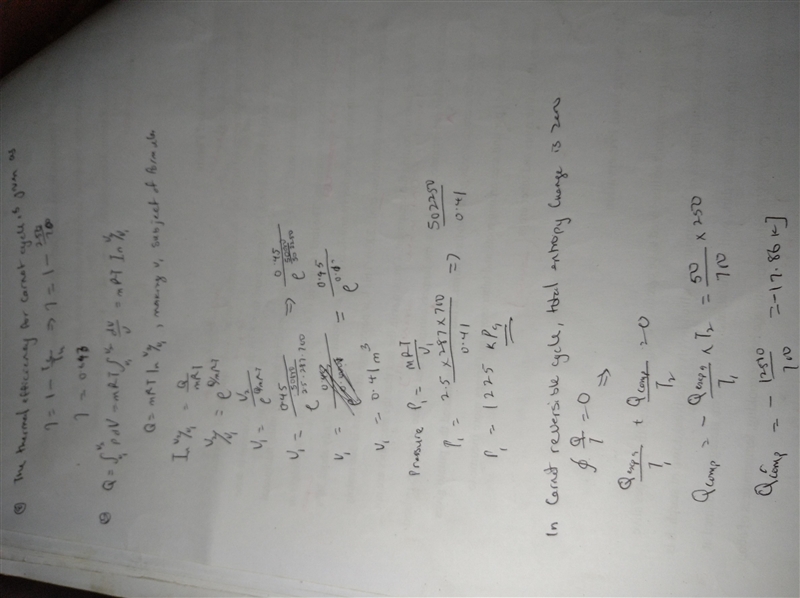 ⓐ The thermal efficiency for Carnot cycle is given as
η = 1 - T₂/T₁ ⇒ η = 1 - 250/700
η = 0.643
Q = ∫ᵥ₁ᵛ² P dV = mRT ∫ᵥ₁ᵛ² dV/V = mRT In V₂/V₁
Q = mRT In V₂/V₁, making V₁ subject of formula
In V₂/V₁ = Q/mRT
V₂/V₁ = e^Q/mRT
V₁ = V₂/e^Q/mRT
V₁ = 0.45/e^50000/2.5·287·700 ⇒ 0.45/e^50000/502250
V₁ = = 0.45/e^0.1
V₁ = 0.41 m³
Pressure P₁ = mRT/V₁
P₁ = 2.5 × 287 × 700/0.41 ⇒ 502250/0.41
P₁ = 1225 kPa
In Carnot reversible cycle, total entropy change is zero
∮ Q/T = 0 ⇒
Qexp/T₁ + Qcomp/T₂ = 0
Qcomp = - Qexp/T₁ × T₂ = 50/700 × 250
Qcomp = - 12500/700 = -17.86 kJ